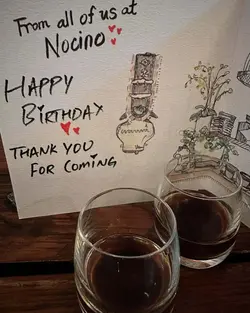 From all of us at
Nocino
HAPPY
BIRTHDAY
THANK YOU
FOR COMING